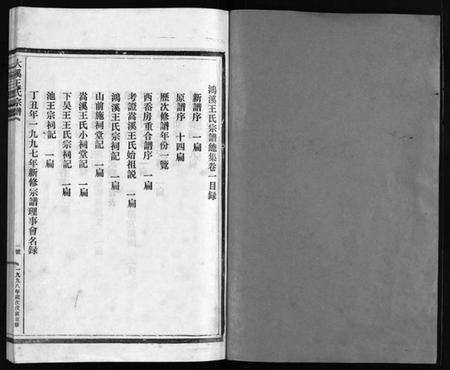 鴻溪王氏宗譜總集卷一目録
新譜序 一扁
原譜序 十四扁
歷次修譜年份一覽
西番房重合譜序 一扁
考證嵩溪王氏始祖説 一扁
鴻溪王氏宗祠記 一扁
山前施祠堂記 一扁
嵩溪王氏小祠堂記 一扁
下吴王王氏宗祠記 一扁
池王宗祠記 一扁
丁丑年一九九七年新修宗譜理事會名録
溪王氏宗譜
一九九八年歲次戊寅